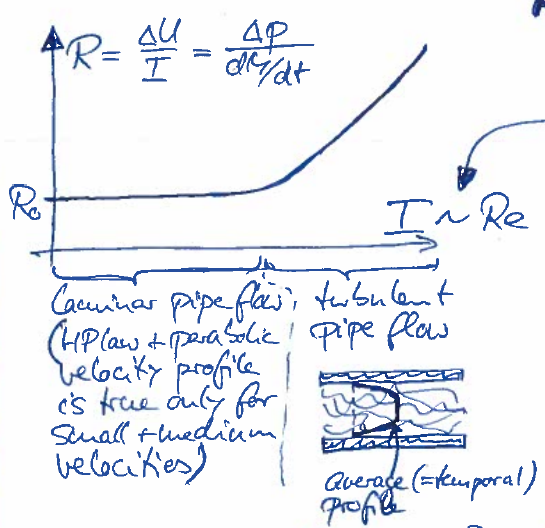 R = ΔU/I = Δp/dV/dt
R₀
I ~ Re
Laminar pipe flow
(HP law + parabolic
velocity profile
is true only for
small + medium
velocities)
turbulent
pipe flow
average (= temporal)
profile